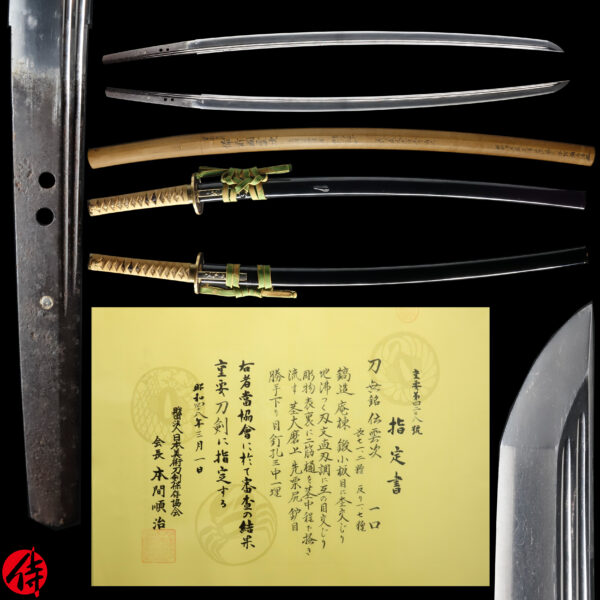 指定書
刀 無銘 伝雲次 一口
鎬造 庵棟 鍛小板目に杢交じり
地沸つく 刃文直刃調に互の目交じり
彫物表裏に二筋樋を茎中程で掻き
流す 茎大磨上 先栗尻 鑢目
勝手下り 目釘孔三中一埋
右者當協會に於て審査の結果
重要刀剣に指定する
昭和四八年三月一日
財団法人日本美術刀剣保存協会
会長 本間順治
侍